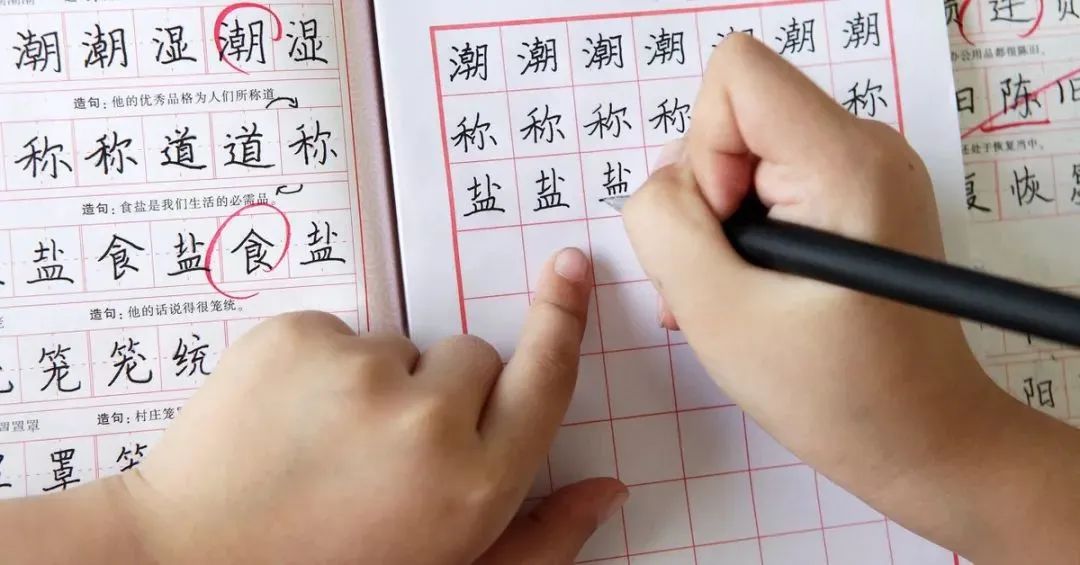 潮 潮 湿 潮 湿
造句：他的优秀品格为人们所称道
称 称 道 道 称
造句：食盐是我们生活的必需品。
盐 食 盐 食 盐
造句：他的话说得很笼统。
笼 笼 统
造句：村庄笼
罩
潮 潮 潮 潮 潮 潮 潮
称 称 称 称 称
盐 盐 盐
连
办公用品都很陈旧。
旧 陈 旧
还处于恢复当中。
复 恢 复
阳